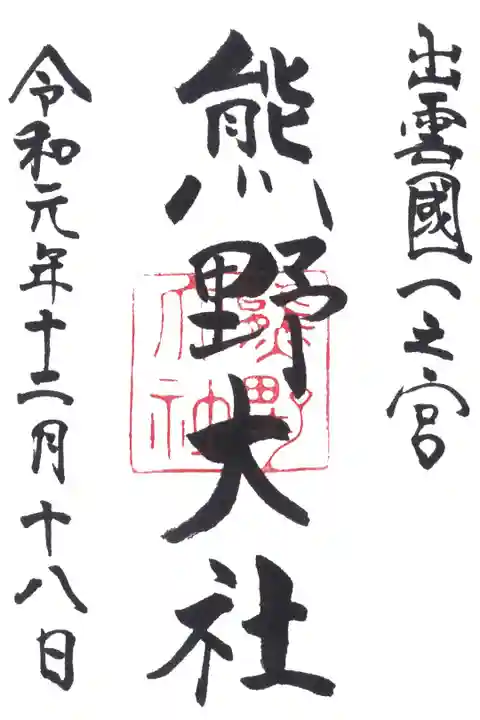 出雲國一之宮
熊野大社
令和元年十二月十八日
熊野
大社